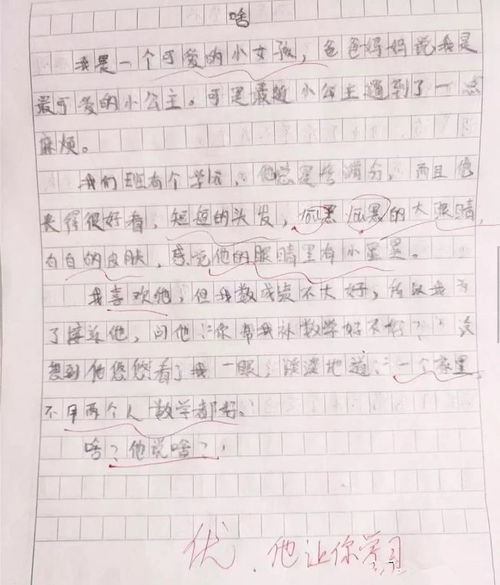 啥
我是一个可爱的小女孩，爸爸妈妈说我是
最可爱的小公主。可是最近小公主遇到了一点
麻烦。
我们班有个学霸，他总是考满分，而且他
长得很好看，短短的头发，黑黑的大眼睛，
白白的皮肤，感觉他的眼睛里有小星星。
我喜欢他，但我数成绩不大好，所以我为
了接近他，问他：“你帮我补数学好不好？”没
想到他悠悠看了我一眼，淡淡地道：“一个家里
不用两个人数学都好。
啥？他说啥？
优.他让你学习